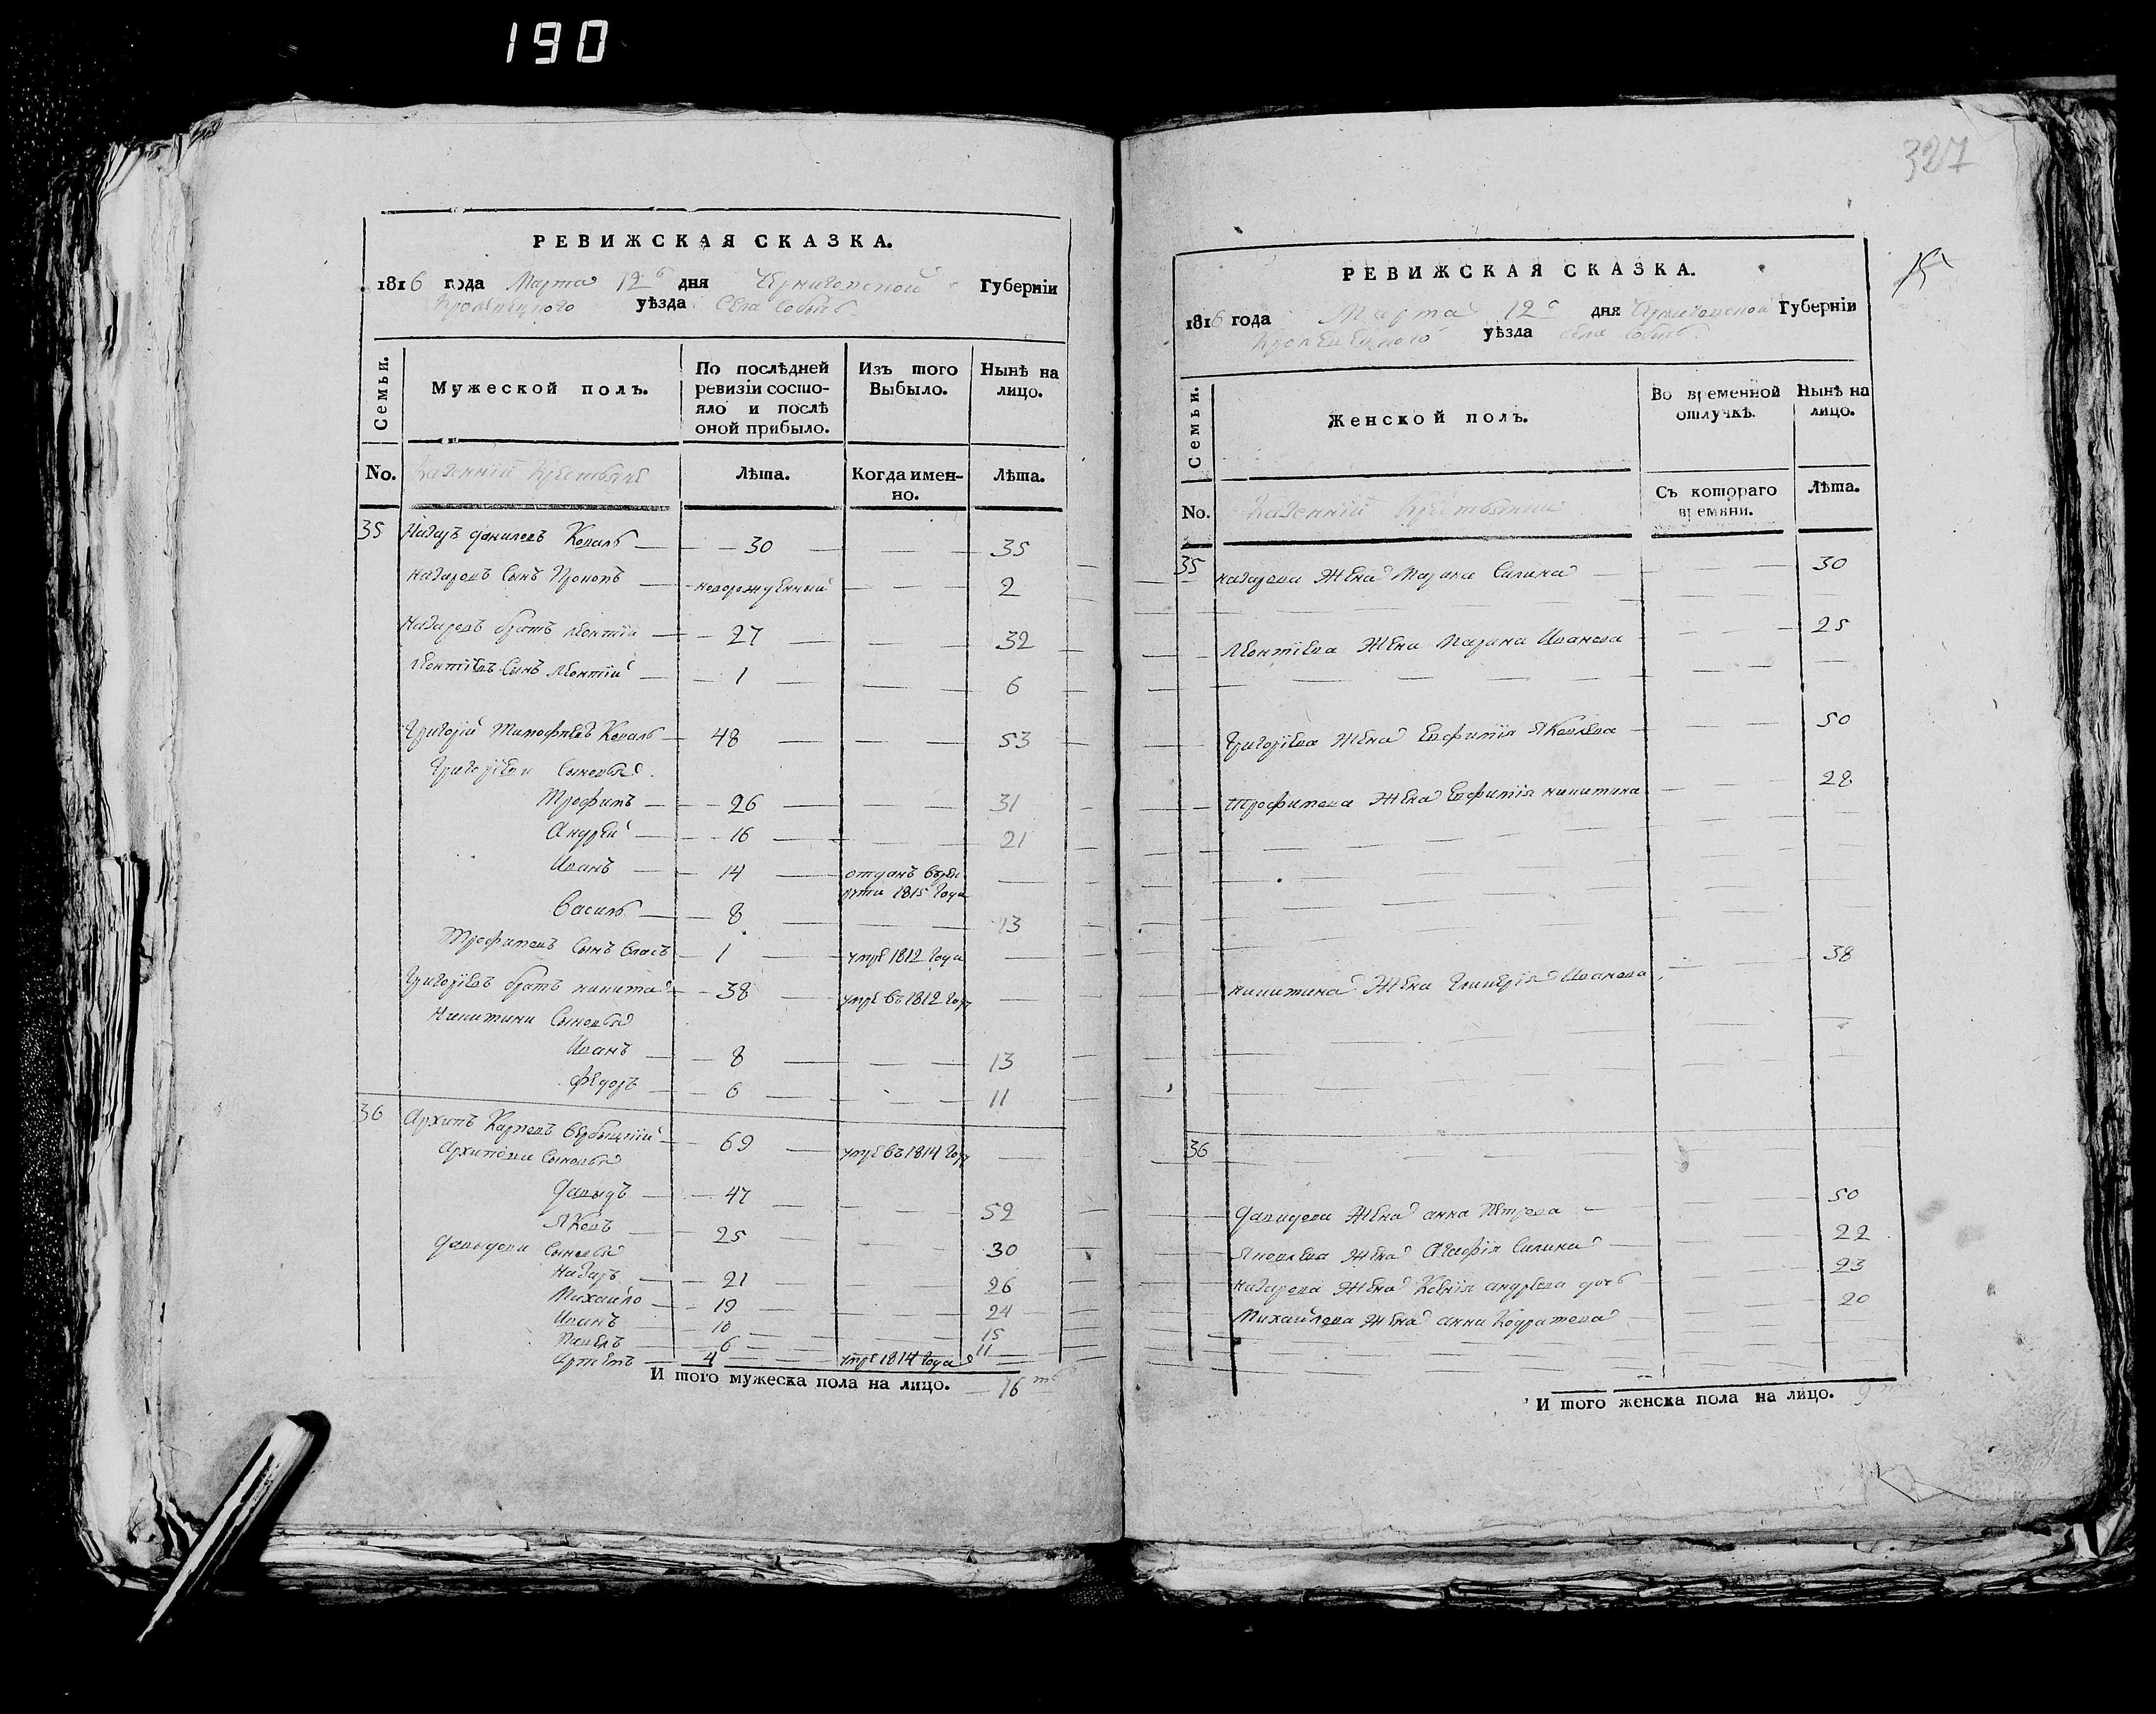 190
РЕВИЖСКАЯ СКАЗКА.
1816 года Марта 12 дня Черниговской Губерніи
Кролевецкого уѣзда Села Собычъ
Семьи.
Мужеской полъ.
По послѣдней ревизіи состо-
яло и послѣ
оной прибыло.
Изъ того Выбыло.
Нынѣ на лицо.
No. Казенній Крестьяне Лѣта. Когда имен-
но. Лѣта.
35 Назаръ Данилевъ Коваль 30 35
Назаровъ Сынъ Прокопъ новорожденный 2
Назаровъ братъ Леонтій 27 32
Леонтіевъ Сынъ Леонтій 1 6
Григорій Тимофѣевъ Коваль 48 53
Григоріеви Сыновья
Трофимъ 26 31
Андрей 16 21
Иванъ 14 отданъ въ рек
руты 1815 Года
Василь 8 13
Трофимовъ Сынъ Власъ 1 умре 1812 Года
Григоріевъ братъ Никита 38 умре въ 1812 Году
Никитини Сыновья
Иванъ 8 13
Федоръ 6 11
36 Архипъ Карповъ Вербицкій 69 умре въ 1814 Году
Архипови Сыновья
Давыдъ 47 52
Яковъ 25 30
Давыдови Сыновья
Назаръ 21 26
Михайло 19 24
Иванъ 10 15
Павелъ 6 11
Артемъ 4 умре 1814 Года
И того мужеска пола на лицо. 16
327
РЕВИЖСКАЯ СКАЗКА.
1816 года Марта 12 дня Черниговской Губерніи
Кролевецкого уѣзда Села Собычъ
Семьи.
Женской полъ.
Во временной отлучкѣ.
Нынѣ на лицо.
No. Казенній Крестьянки Съ котораго
времяни. Лѣта.
35 Назарова Жена Марина Силина 30
Леонтіева Жена Марина Иванова 25
Григоріева Жена Евфимія Яковлева 50
Трофимова Жена Евфимія Никитина 28
Никитина Жена Гликерія Иванова 38
36
Давидова Жена Анна Петрова 50
Яковлева Жена Агафія Силина 22
Назарова Жена Ксенія Андреева дочь 23
Михайлова Жена Анна Кодратова 20
И того женска пола на лицо. 9